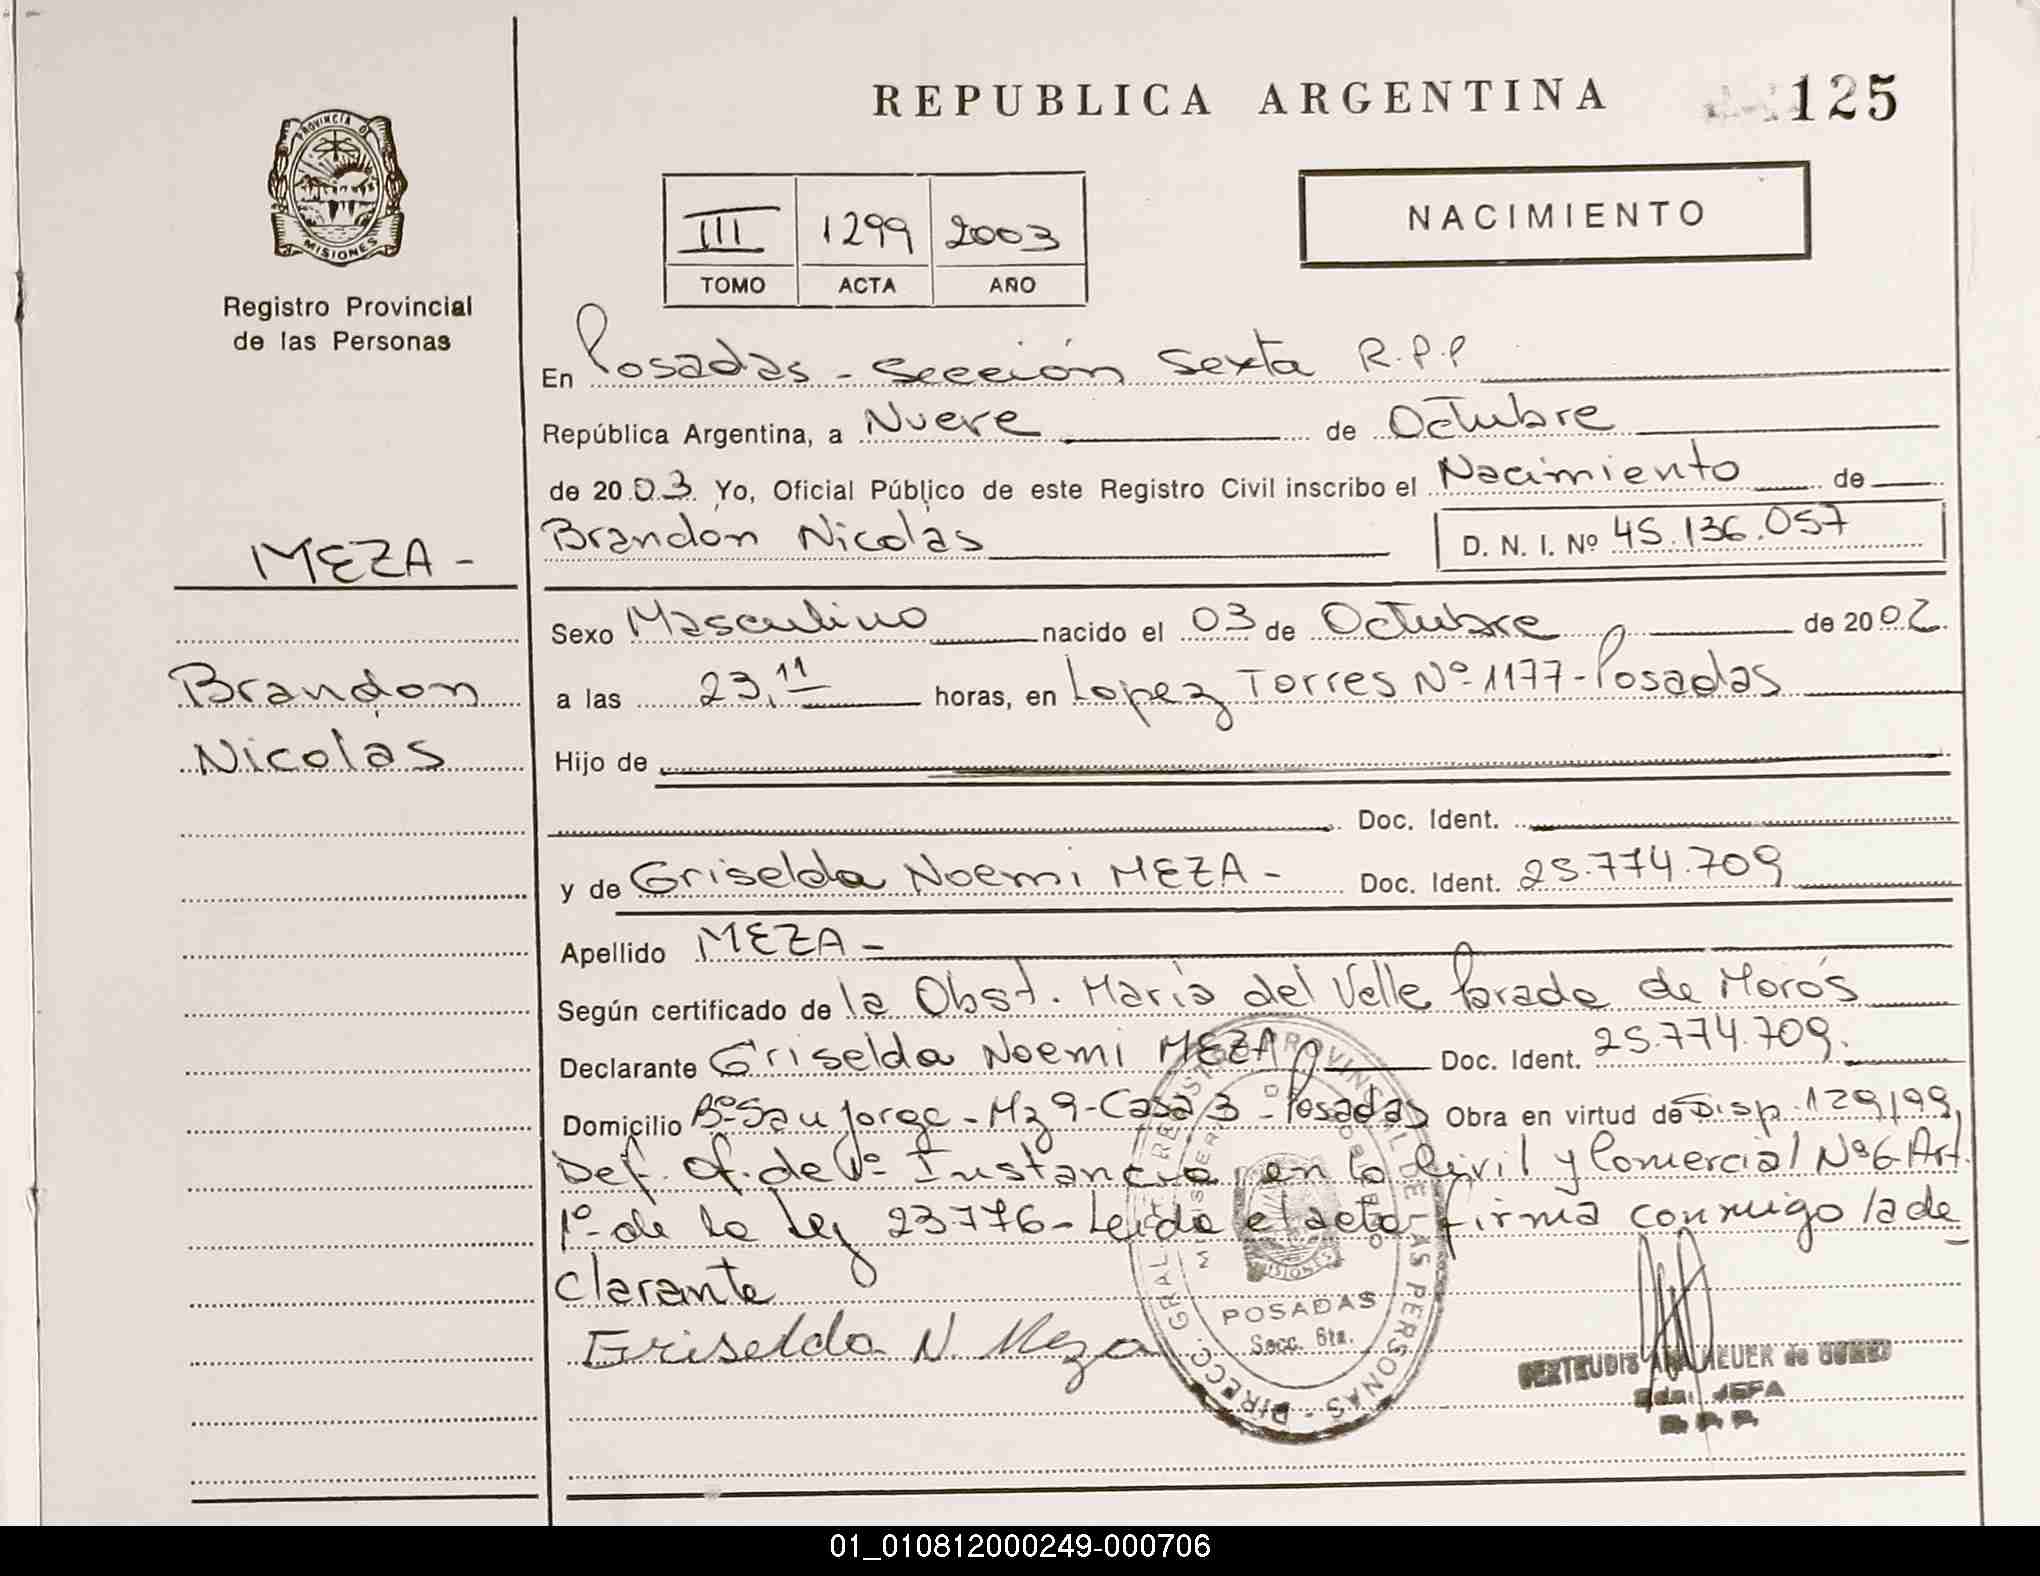 REPUBLICA ARGENTINA
125
PROVINCIA D
MISIONES
Registro Provincial
de las Personas
III 1299 2003
TOMO ACTA AÑO
NACIMIENTO
En Posadas - Sección Sexta R.P.P
República Argentina, a Nueve de Octubre
de 2003. Yo, Oficial Público de este Registro Civil inscribo el Nacimiento de
Brandon Nicolás D. N. I. Nº 45.136.057
MEZA -
Brandon
Nicolás
Sexo Masculino nacido el 03 de Octubre de 2002.
a las 23,11 horas, en Lopez Torres Nº 1177 - Posadas
Hijo de
Doc. Ident.
y de Griselda Noemi MEZA - Doc. Ident. 25.774.709
Apellido MEZA -
Según certificado de la Obst. María del Valle Parada de Morós
Declarante Griselda Noemi MEZA Doc. Ident. 25.774.709.
Domicilio Bº San Jorge - Mz 9 - Casa 3 - Posadas Obra en virtud de Disp. 129/99,
Def. Of. de 1º Instancia en lo Civil y Comercial Nº 6 - Art.
1º de la Ley 23776 - Leída el acta firma conmigo la de
clarante
Griselda N. Meza
DIRECC. GRAL. REGISTRO PROVINCIAL DE LAS PERSONAS
MISIONES
POSADAS
Secc. 6ta.
GERTRUDIS
JEFA
R. P. P.
01_010812000249-000706